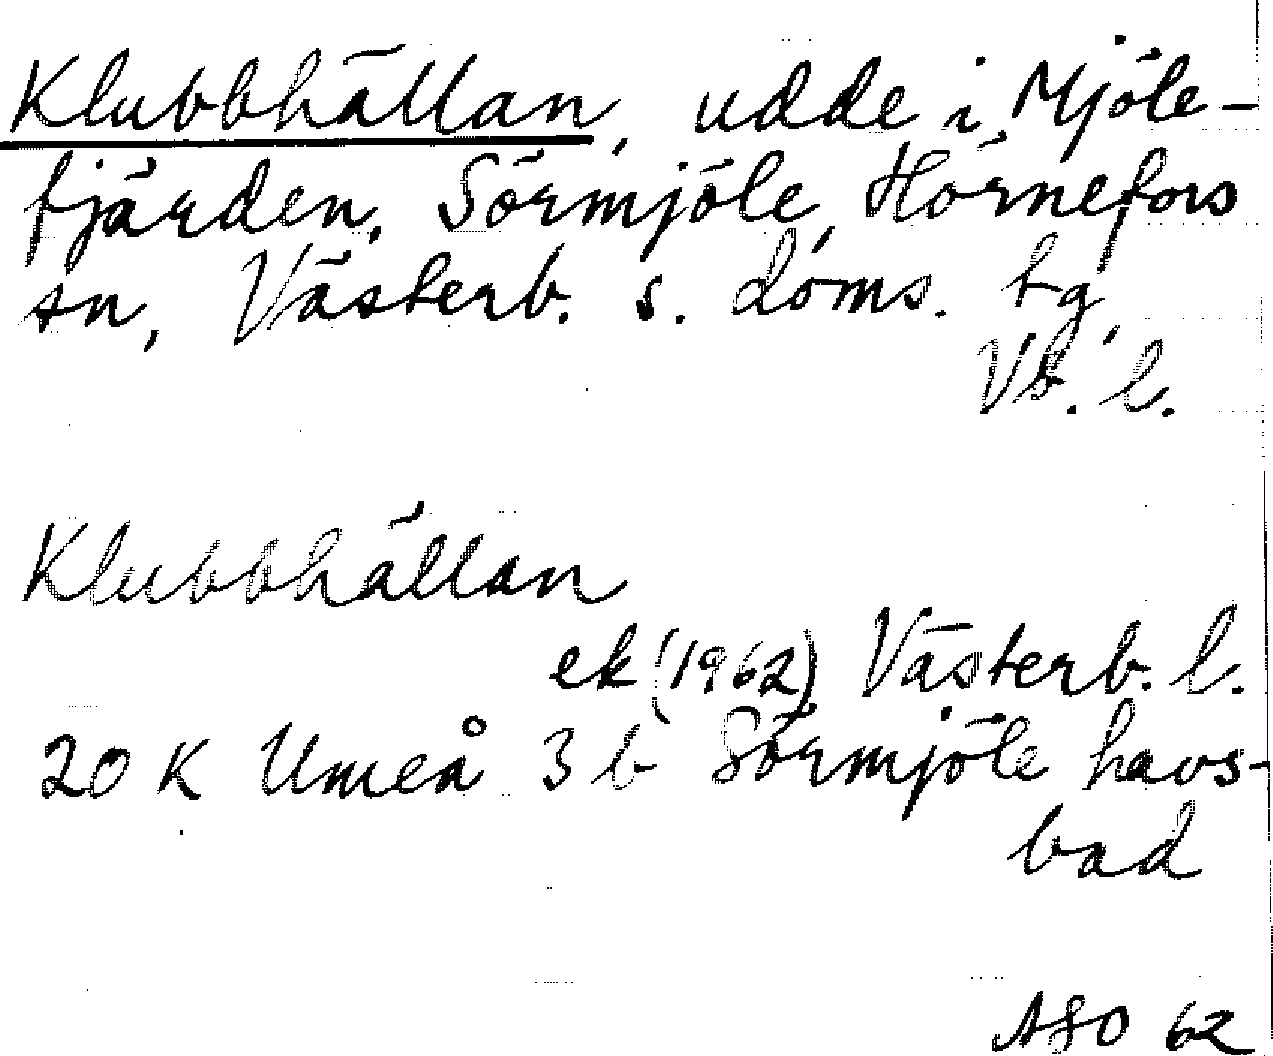 Klubbhällan, udde i Mjöle-
fjärden, Sörmjöle, Hörnefors
sn, Västerb. s. doms. tg,
Vb. l.
Klubbhällan
ek (1962) Västerb. l.
20 K Umeå 3 b Sörmjöle havs-
bad
ASO 62